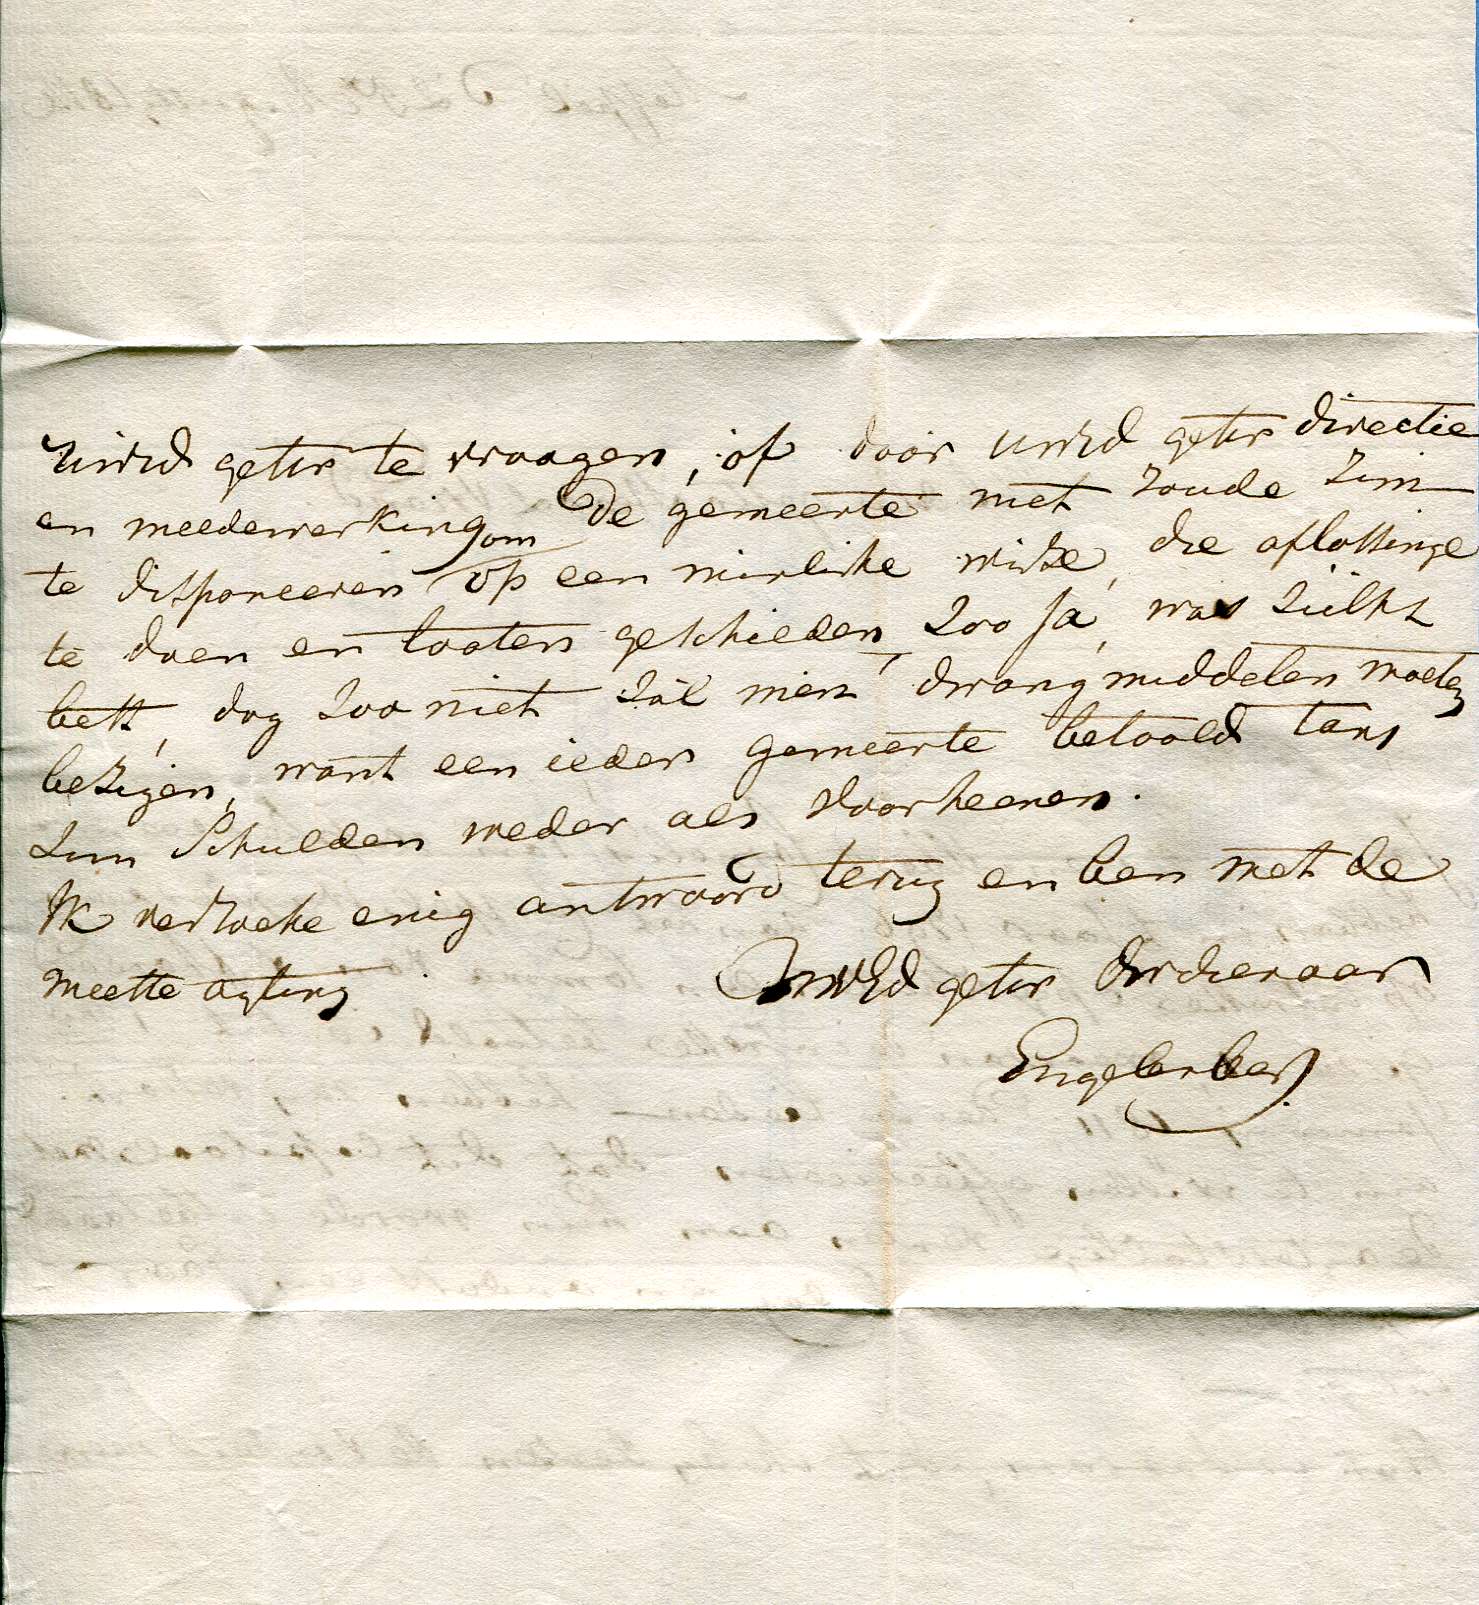 uwEd gestr te vraagen, of door uwEd gestr directie
en meedewerking de gemeente niet zoude zijn
om
te disponeeren op een minlijke wijze, die aflossinge
te doen en laaten geschieden, zoo ja, was zulks
best, dog zoo niet zal men dwang middelen moeten
bezigen, want een ieder gemeente betaald tans
zijn schulden weder als voorheenen.
Ik verzoeke enig antwoord terug en ben met de
meeste agting
uwEd gestr Dw dienaar
Engelenberg